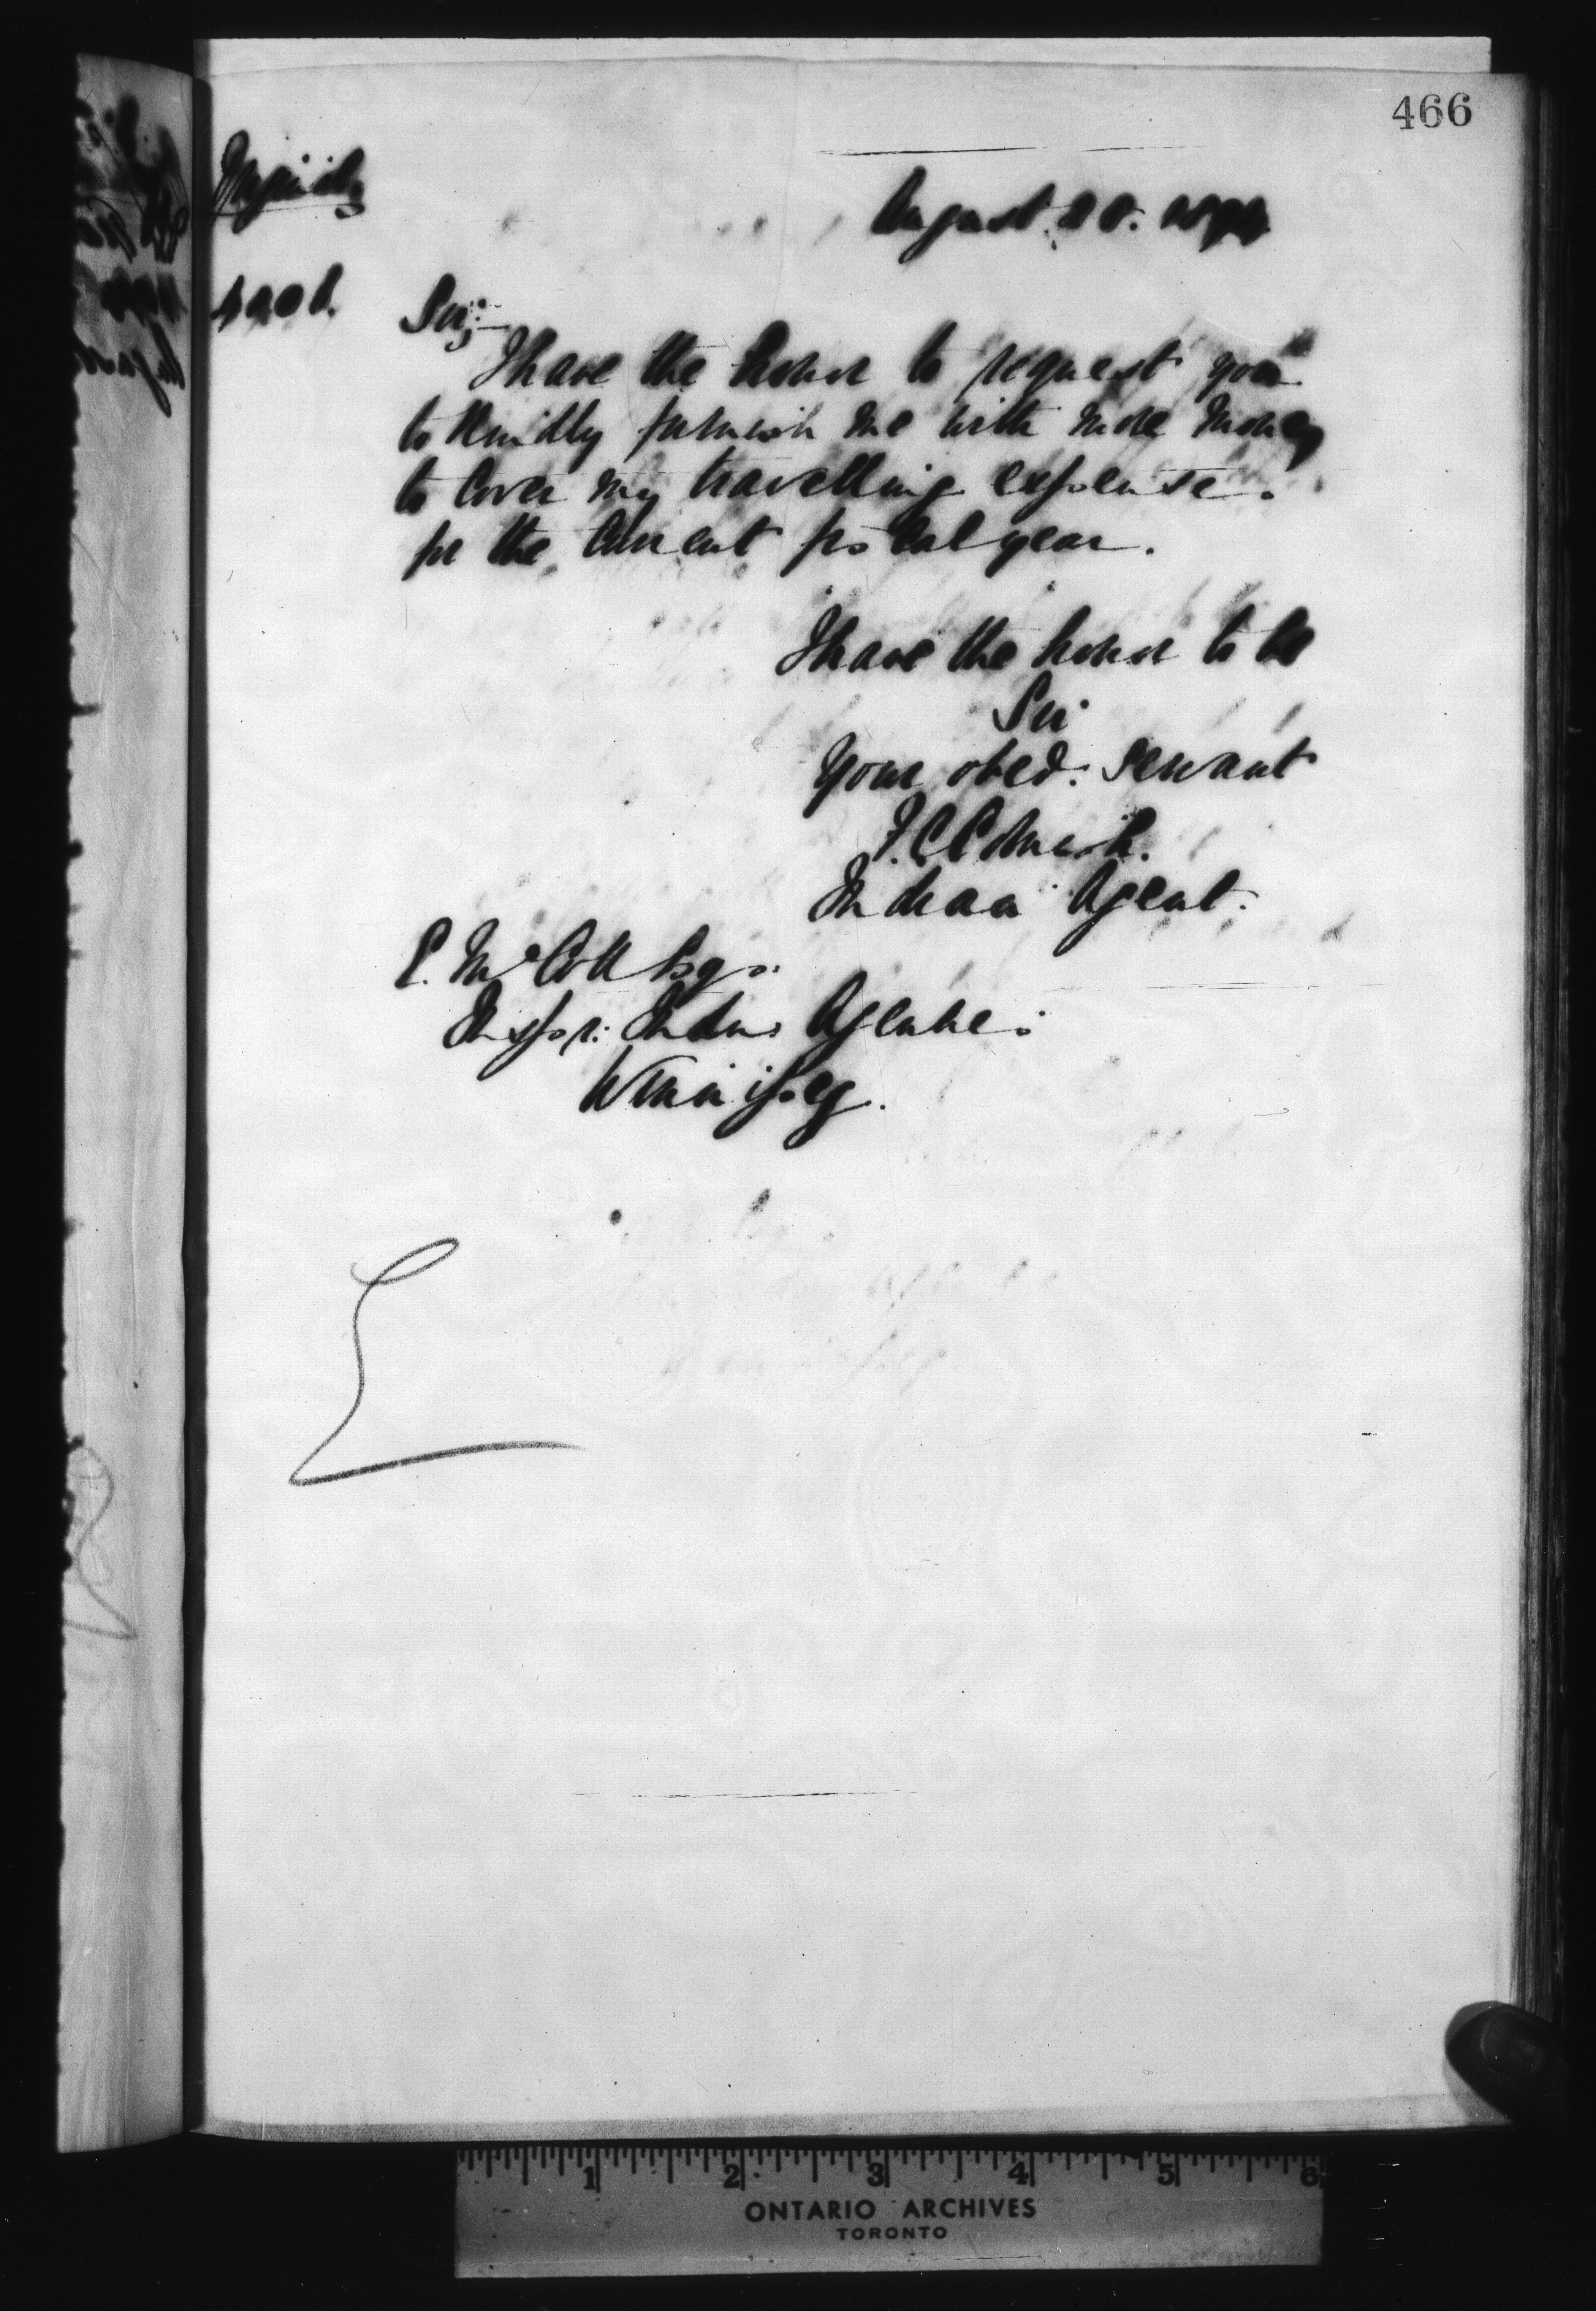 466
August 20.
Sir;—
I have the honor to request you
to kindly furnish me with more money
to cover my travelling expense.
for the current fiscal year.
I have the honor to be
Sir
Your obed. servant
F.C. Cornish.
Indian Agent.
E. McColl Esqr.
Inspr. Indn. Agencies
Winnipeg.
1 2 3 4 5 6
ONTARIO ARCHIVES
TORONTO